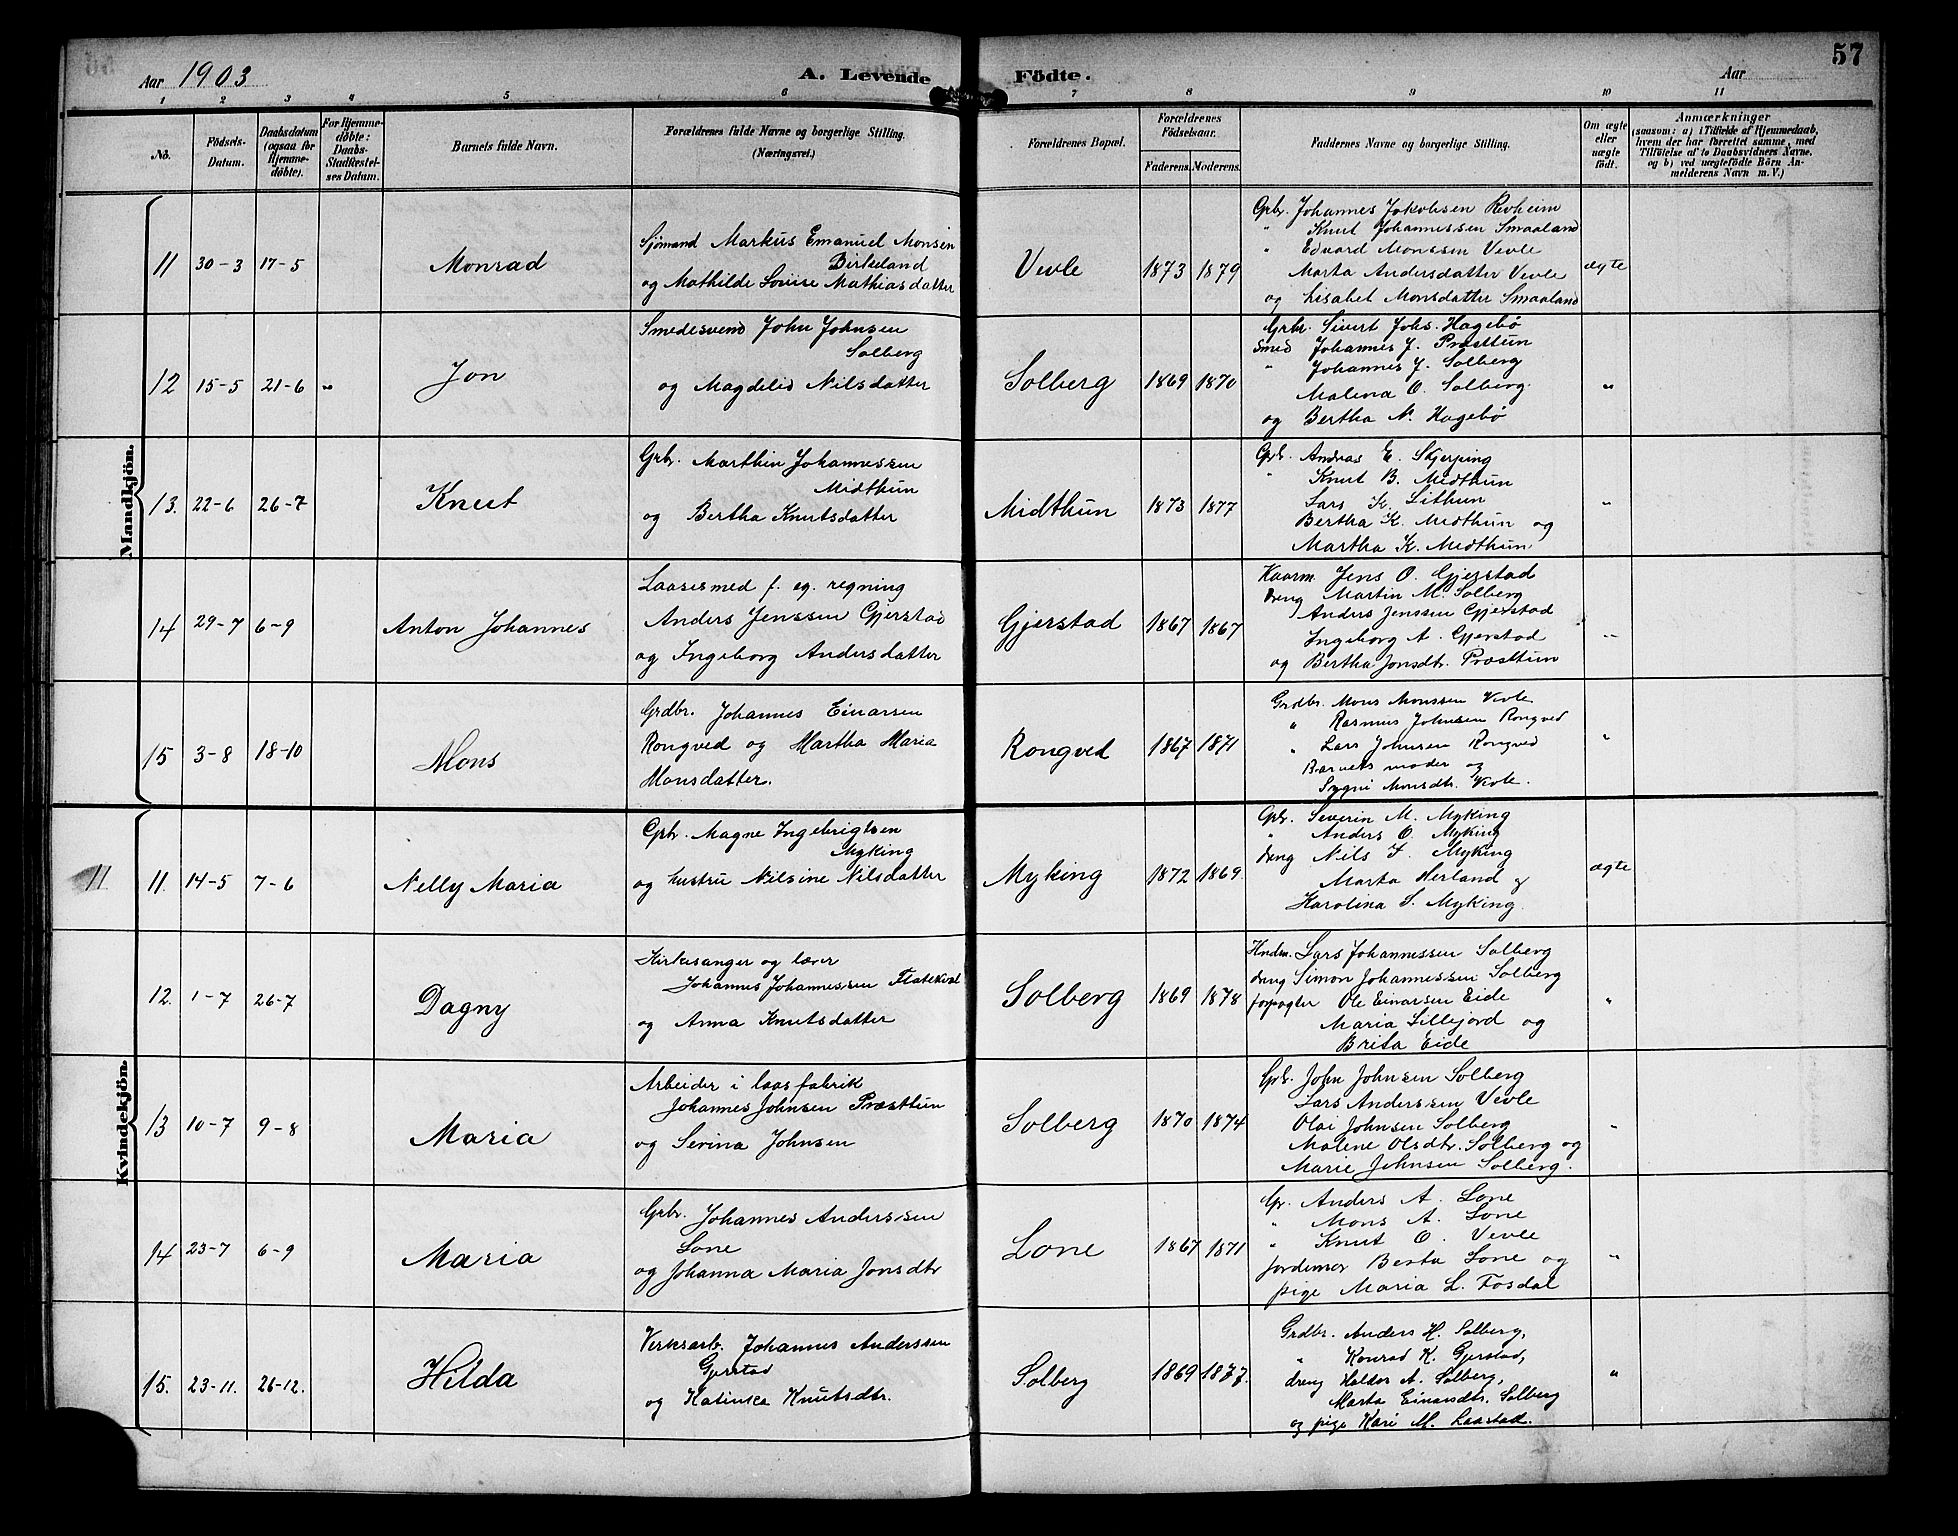 57
Aar 1903
A. Levende Födte.
Aar
1 2 3 4 5 6 7 8 9 10 11
No.
Födsels-
Datum.
Daabsdatum
(ogsaa for
Hjemme-
døbte).
For Hjemme-
döbte:
Daabs-
Stadfæstel-
ses Datum.
Barnets fulde Navn.
Forældrenes fulde Navne og borgerlige Stilling.
(Næringsvei.)
Forældrenes Bopæl.
Forældrenes
Födselsaar.
Faderens. Moderens.
Faddernes Navne og borgerlige Stilling.
Om ægte
eller
uægte
födt.
Anmærkninger
(saasom: a) i Tilfælde af Hjemmedaab,
hvem der har forrettet samme, med
Tilföielse af to Daabsvidners Navne,
og b) ved uægtefödte Börn An-
melderens Navn m. V.)
Mandkjön.
11 30-3 17-5
Monrad
Sjømand Markus Emanuel Monsen
Birkeland
og Mathilde Louise Mathiasdatter
Vevle
1873 1879
Grbr. Johannes Jakobsen Revheim
" Knut Johannessen Smaaland
" Edvard Monssen Vevle
Marta Andersdatter Vevle
og Lisabet Monsdatter Smaaland
ægte
12 15-5 21-6 "
Jon
Smedesvend John Johnsen
Solberg
og Magdelid Nilsdatter
Solberg
1869 1870
Grbr. Sivert Johs. Hagebø
Smed Johannes J. Præsttun
" Johannes J. Solberg
Malena O. Solberg
og Bertha N. Hagebø
"
13. 22-6 26-7
Knut
Grbr. Marthin Johannessen
Midthun
og Bertha Knutsdatter
Midthun
1873 1877
Grb. Andreas E. Skjerping
" Knut B. Midthun
Lars K. Lithun
Bertha K. Midthun og
Martha K. Midthun
"
14 29-7 6-9
Anton Johannes
Laasesmed f. eg. regning
Anders Jenssen Gjerstad
og Ingeborg Andersdatter
Gjerstad
1867 1867
Kaarm. Jens O. Gjerstad
dreng Martin M. Solberg
Anders Jenssen Gjerstad
Ingeborg A. Gjerstad
og Bertha Jonsdtr. Præsttun
"
15 3-8 18-10
Mons
Grdbr. Johannes Einarsen
Rongved og Martha Maria
Monsdatter.
Rongved
1867 1871
Grdbr. Mons Monssen Vevle
" Rasmus Johnsen Rongved
" Lars Johnsen Rongved
Barnets moder og
Sygni Monsdtr. Vevle.
"
Kvindekjön.
11
11. 14-5 7-6
Nelly Maria
Grb. Magne Ingebrigtsen
Myking
og hustru Nilsine Nilsdatter
Myking
1872 1869
Grb. Severin M. Myking
" Anders O. Myking
dreng Nils I. Myking
Marta Herland og
Karolina S. Myking
ægte
12. 1-7 26-7
Dagny
Kirkesanger og lærer
Johannes Johannessen Flatekval
og Anna Knutsdatter
Solberg
1869 1878
Hndm. Lars Johannessen Solberg
dreng Simon Johannessen Solberg
forpagter Ole Einarsen Eide
Maria Lillejord og
Brita Eide
"
13 10-7 9-8
Maria
Arbeider i laasfabrik
Johannes Johnsen Præsttun
og Serina Johnsen
Solberg
1870 1874
Grb. John Johnsen Solberg
Lars Anderssen Vevle
Olai Johnsen Solberg
Malene Olsdtr. Solberg og
Marie Johnsen Solberg.
"
14 23-7 6-9
Maria
Grbr. Johannes Anderssen
Lone
og Johanna Maria Jonsdtr
Lone
1867 1871
Gr. Anders A. Lone
" Mons A. Lone
" Knut O. Vevle
Jordemor Berta Lone og
pige Maria L. Fosdal
"
15. 23-11. 26-12.
Hilda
Verksarb. Johannes Anderssen
Gjerstad
og Katinka Knutsdtr.
Solberg
1869 1877.
Grdbr. Anders H. Solberg,
" Konrad K. Gjerstad,
dreng Haldor A. Solberg,
Marta Einarsdtr. Solberg
og pige Kari M. Laastad.
"